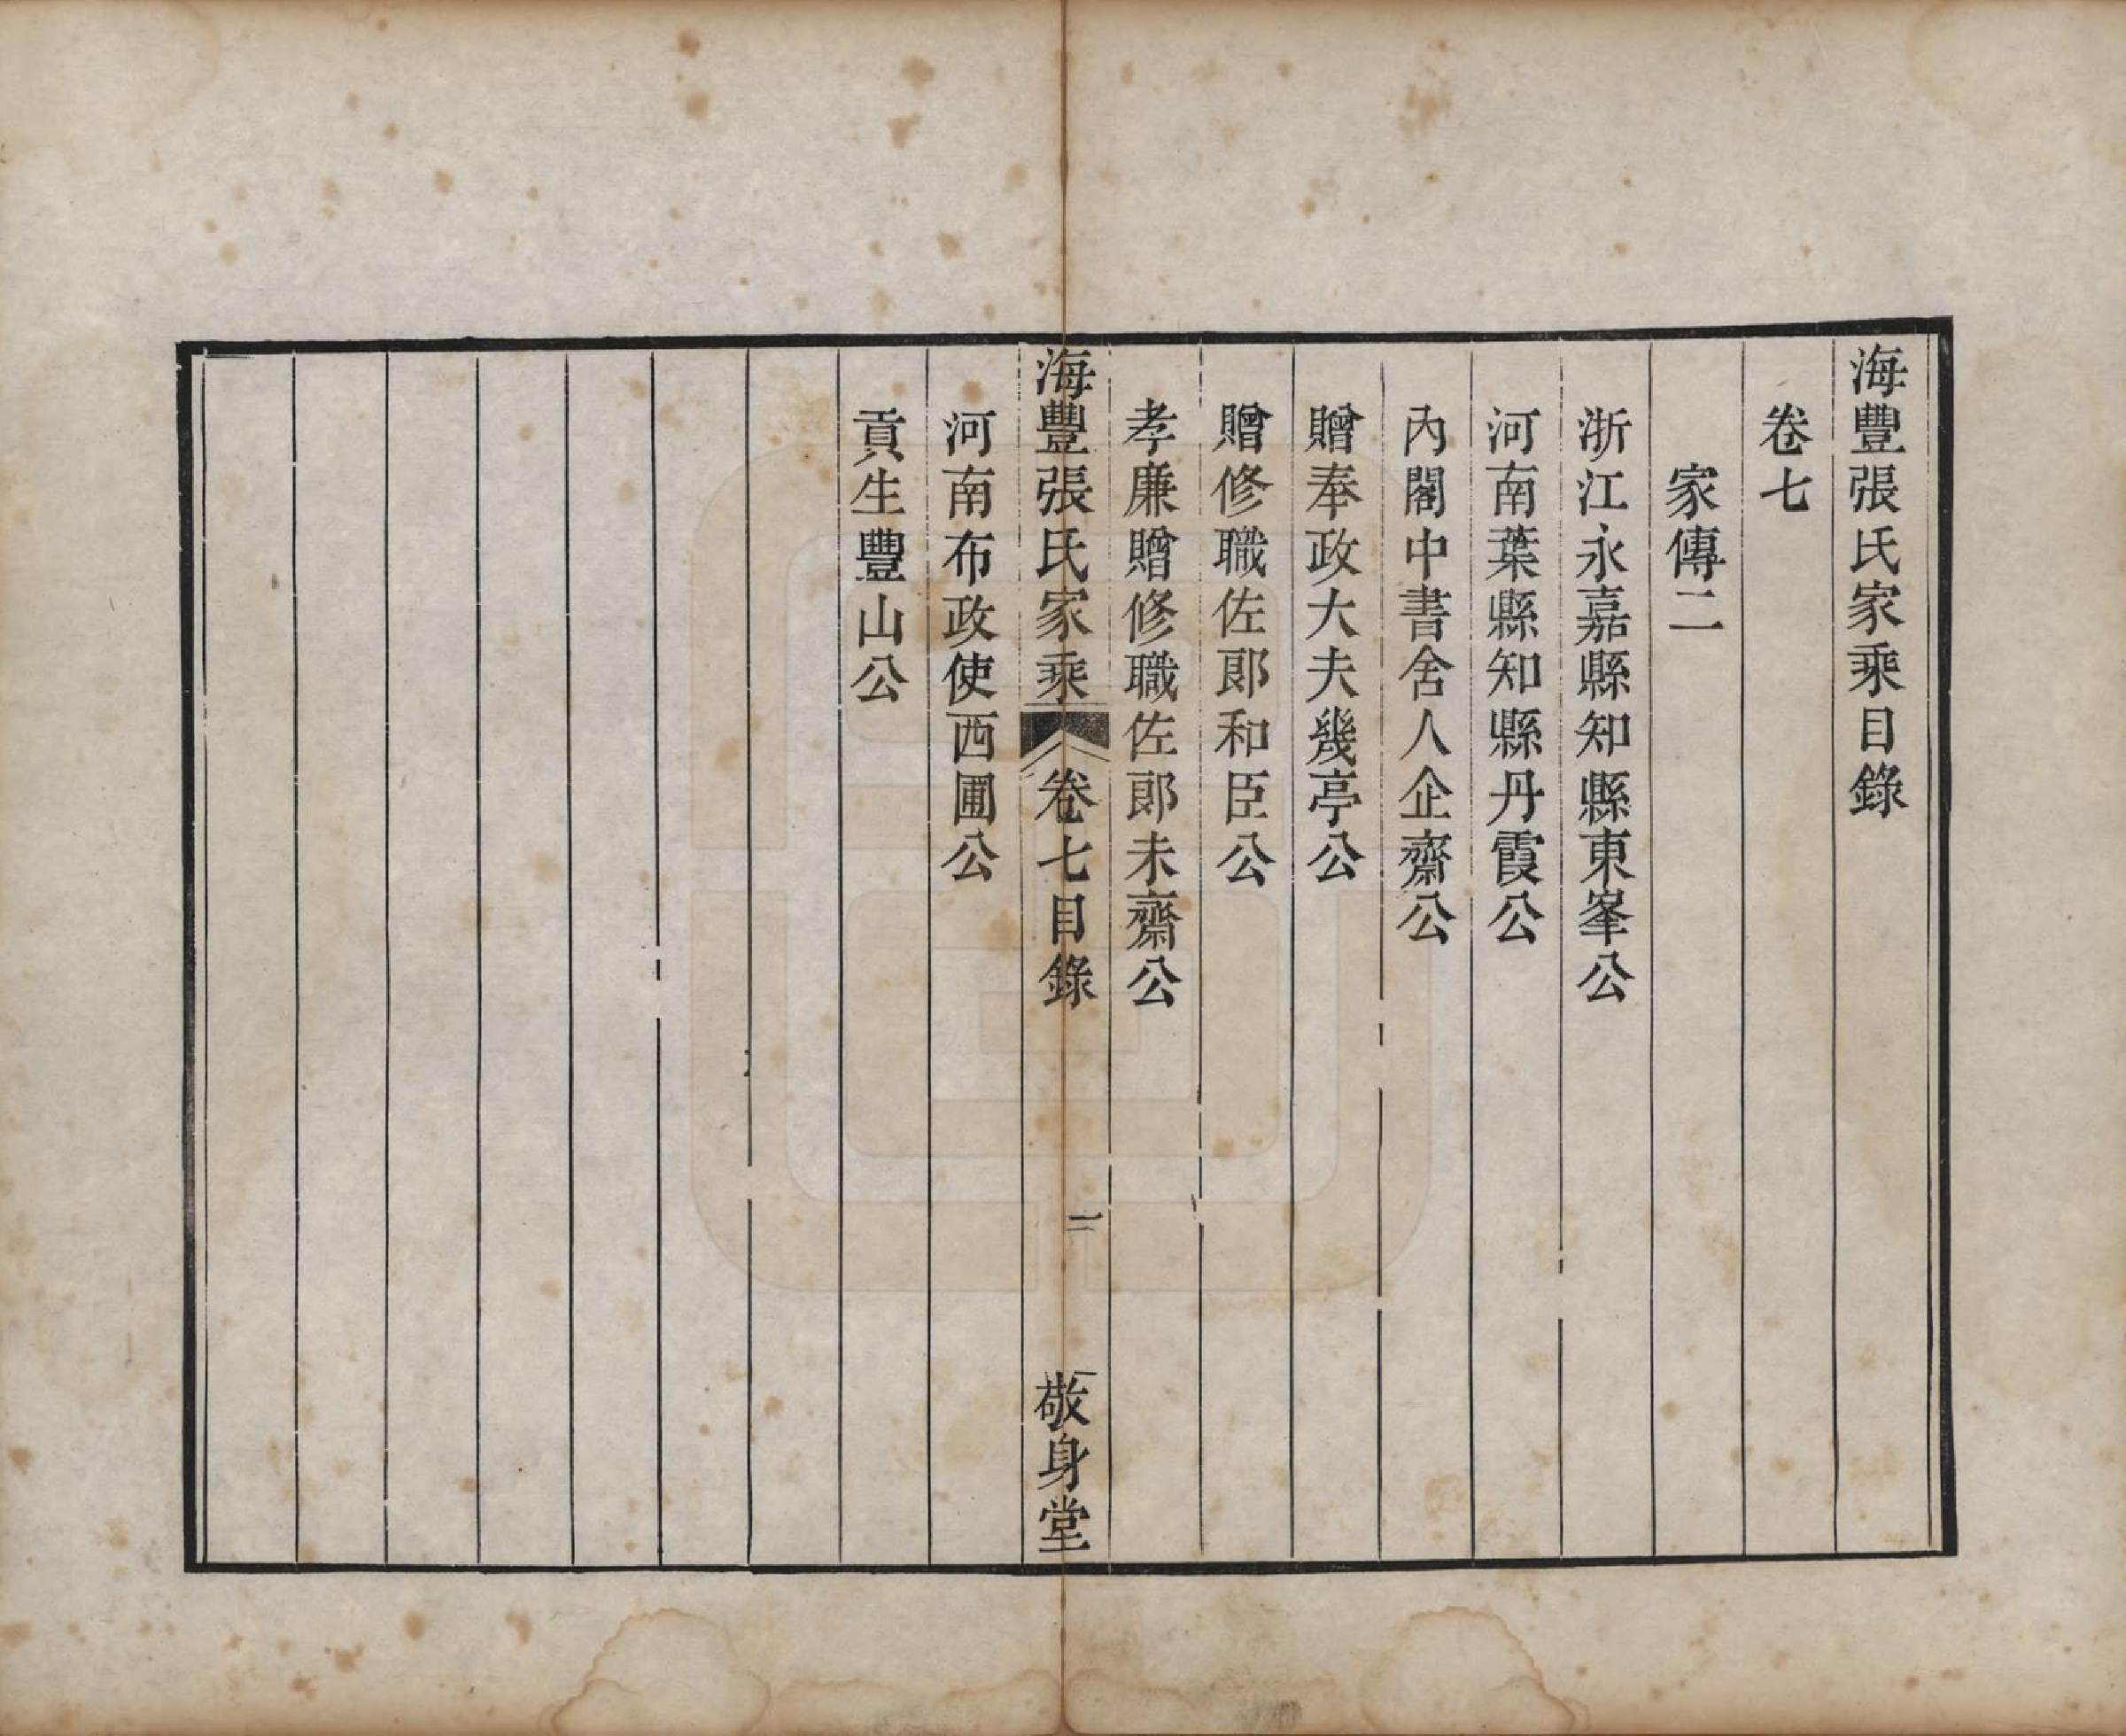 海豐張氏家乘目錄
卷七
家傳二
浙江永嘉縣知縣東峯公
河南葉縣知縣丹霞公
內閣中書舍人企齋公
贈奉政大夫幾亭公
贈修職佐郎和臣公
孝廉贈修職佐郎未齋公
海豐張氏家乘 卷七目錄 二 敬身堂
河南布政使西圃公
貢生豐山公